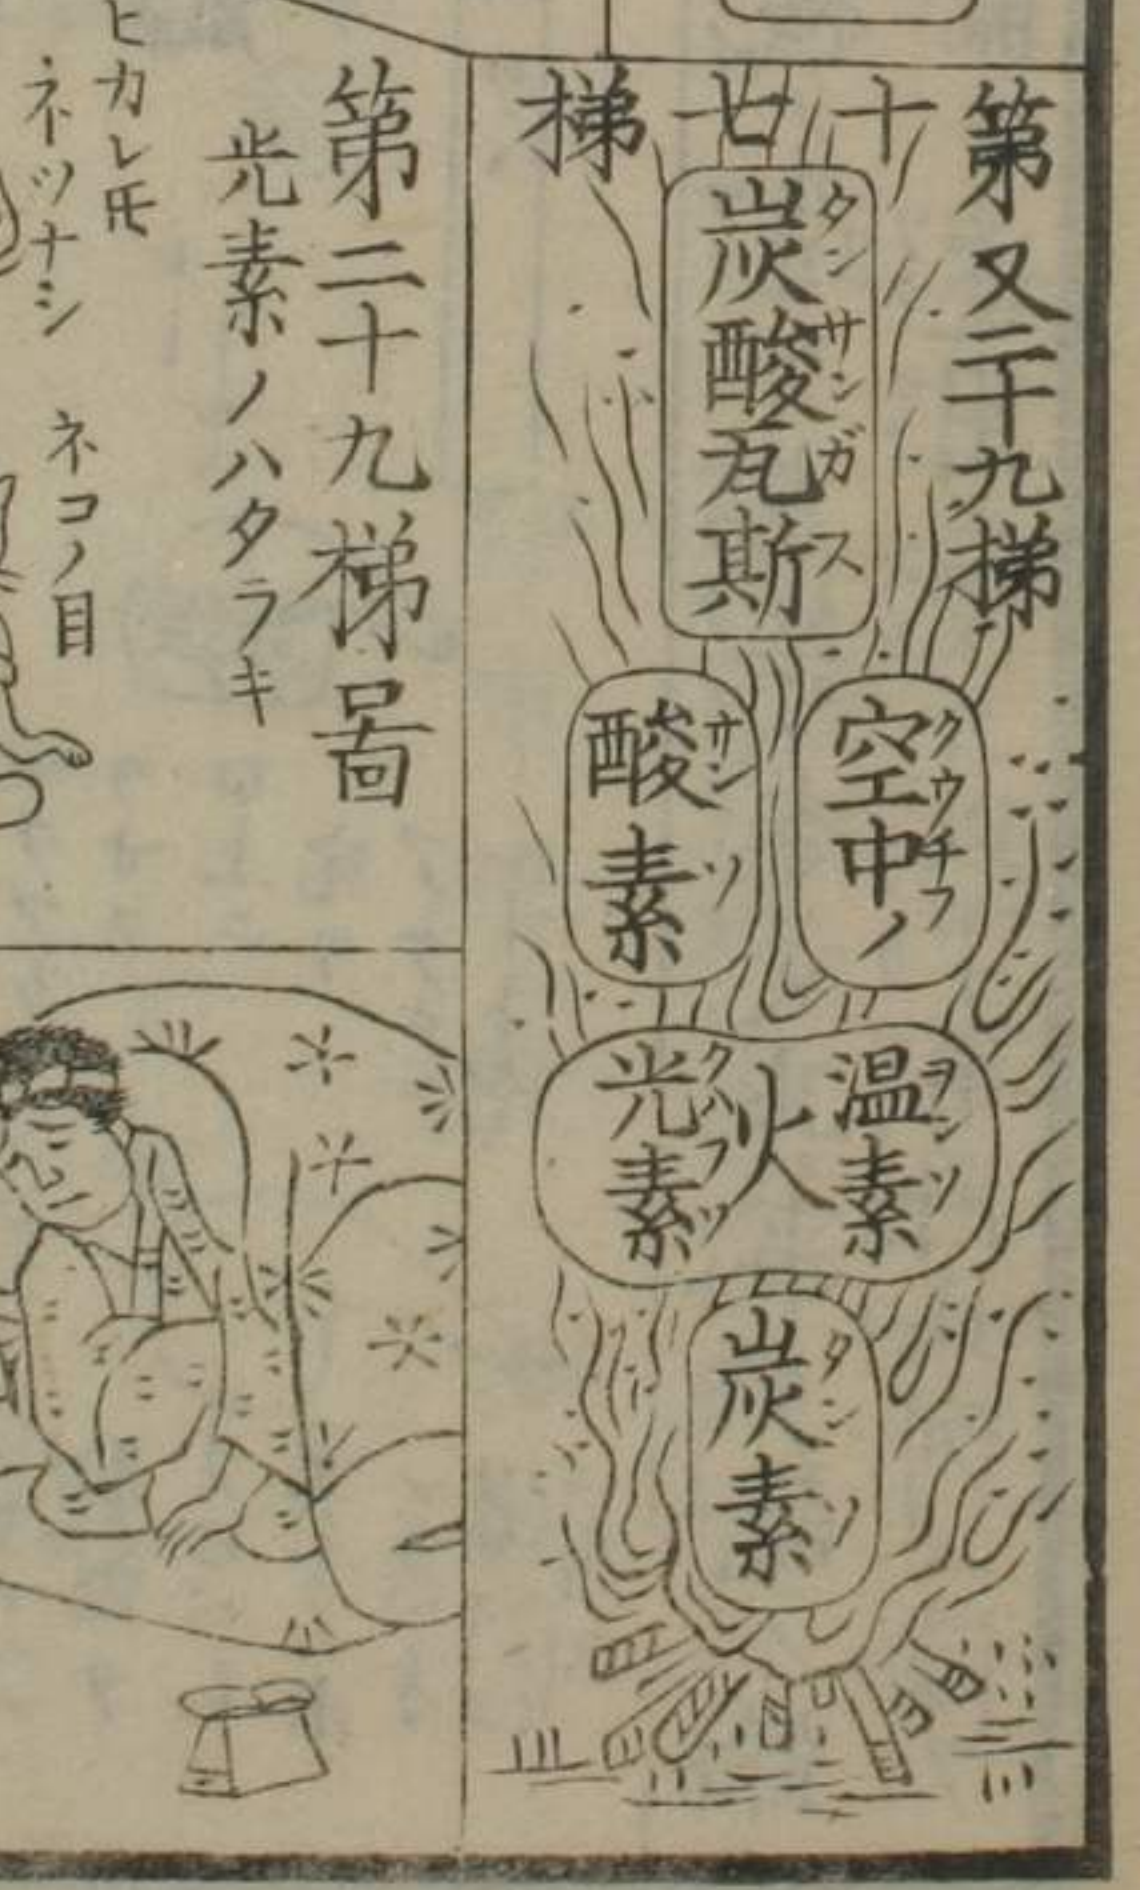 第又二十九梯
十
廿
梯
炭酸瓦斯
タンサンガス
空中ノ
クウチフ
酸素
サンソ
温素
ヲンソ
火
光素
クハフソ
炭素
タンソ
第二十九梯啚
光素ノハタラキ
ヒカレ𪜈
ネツナシ
ネコノ目